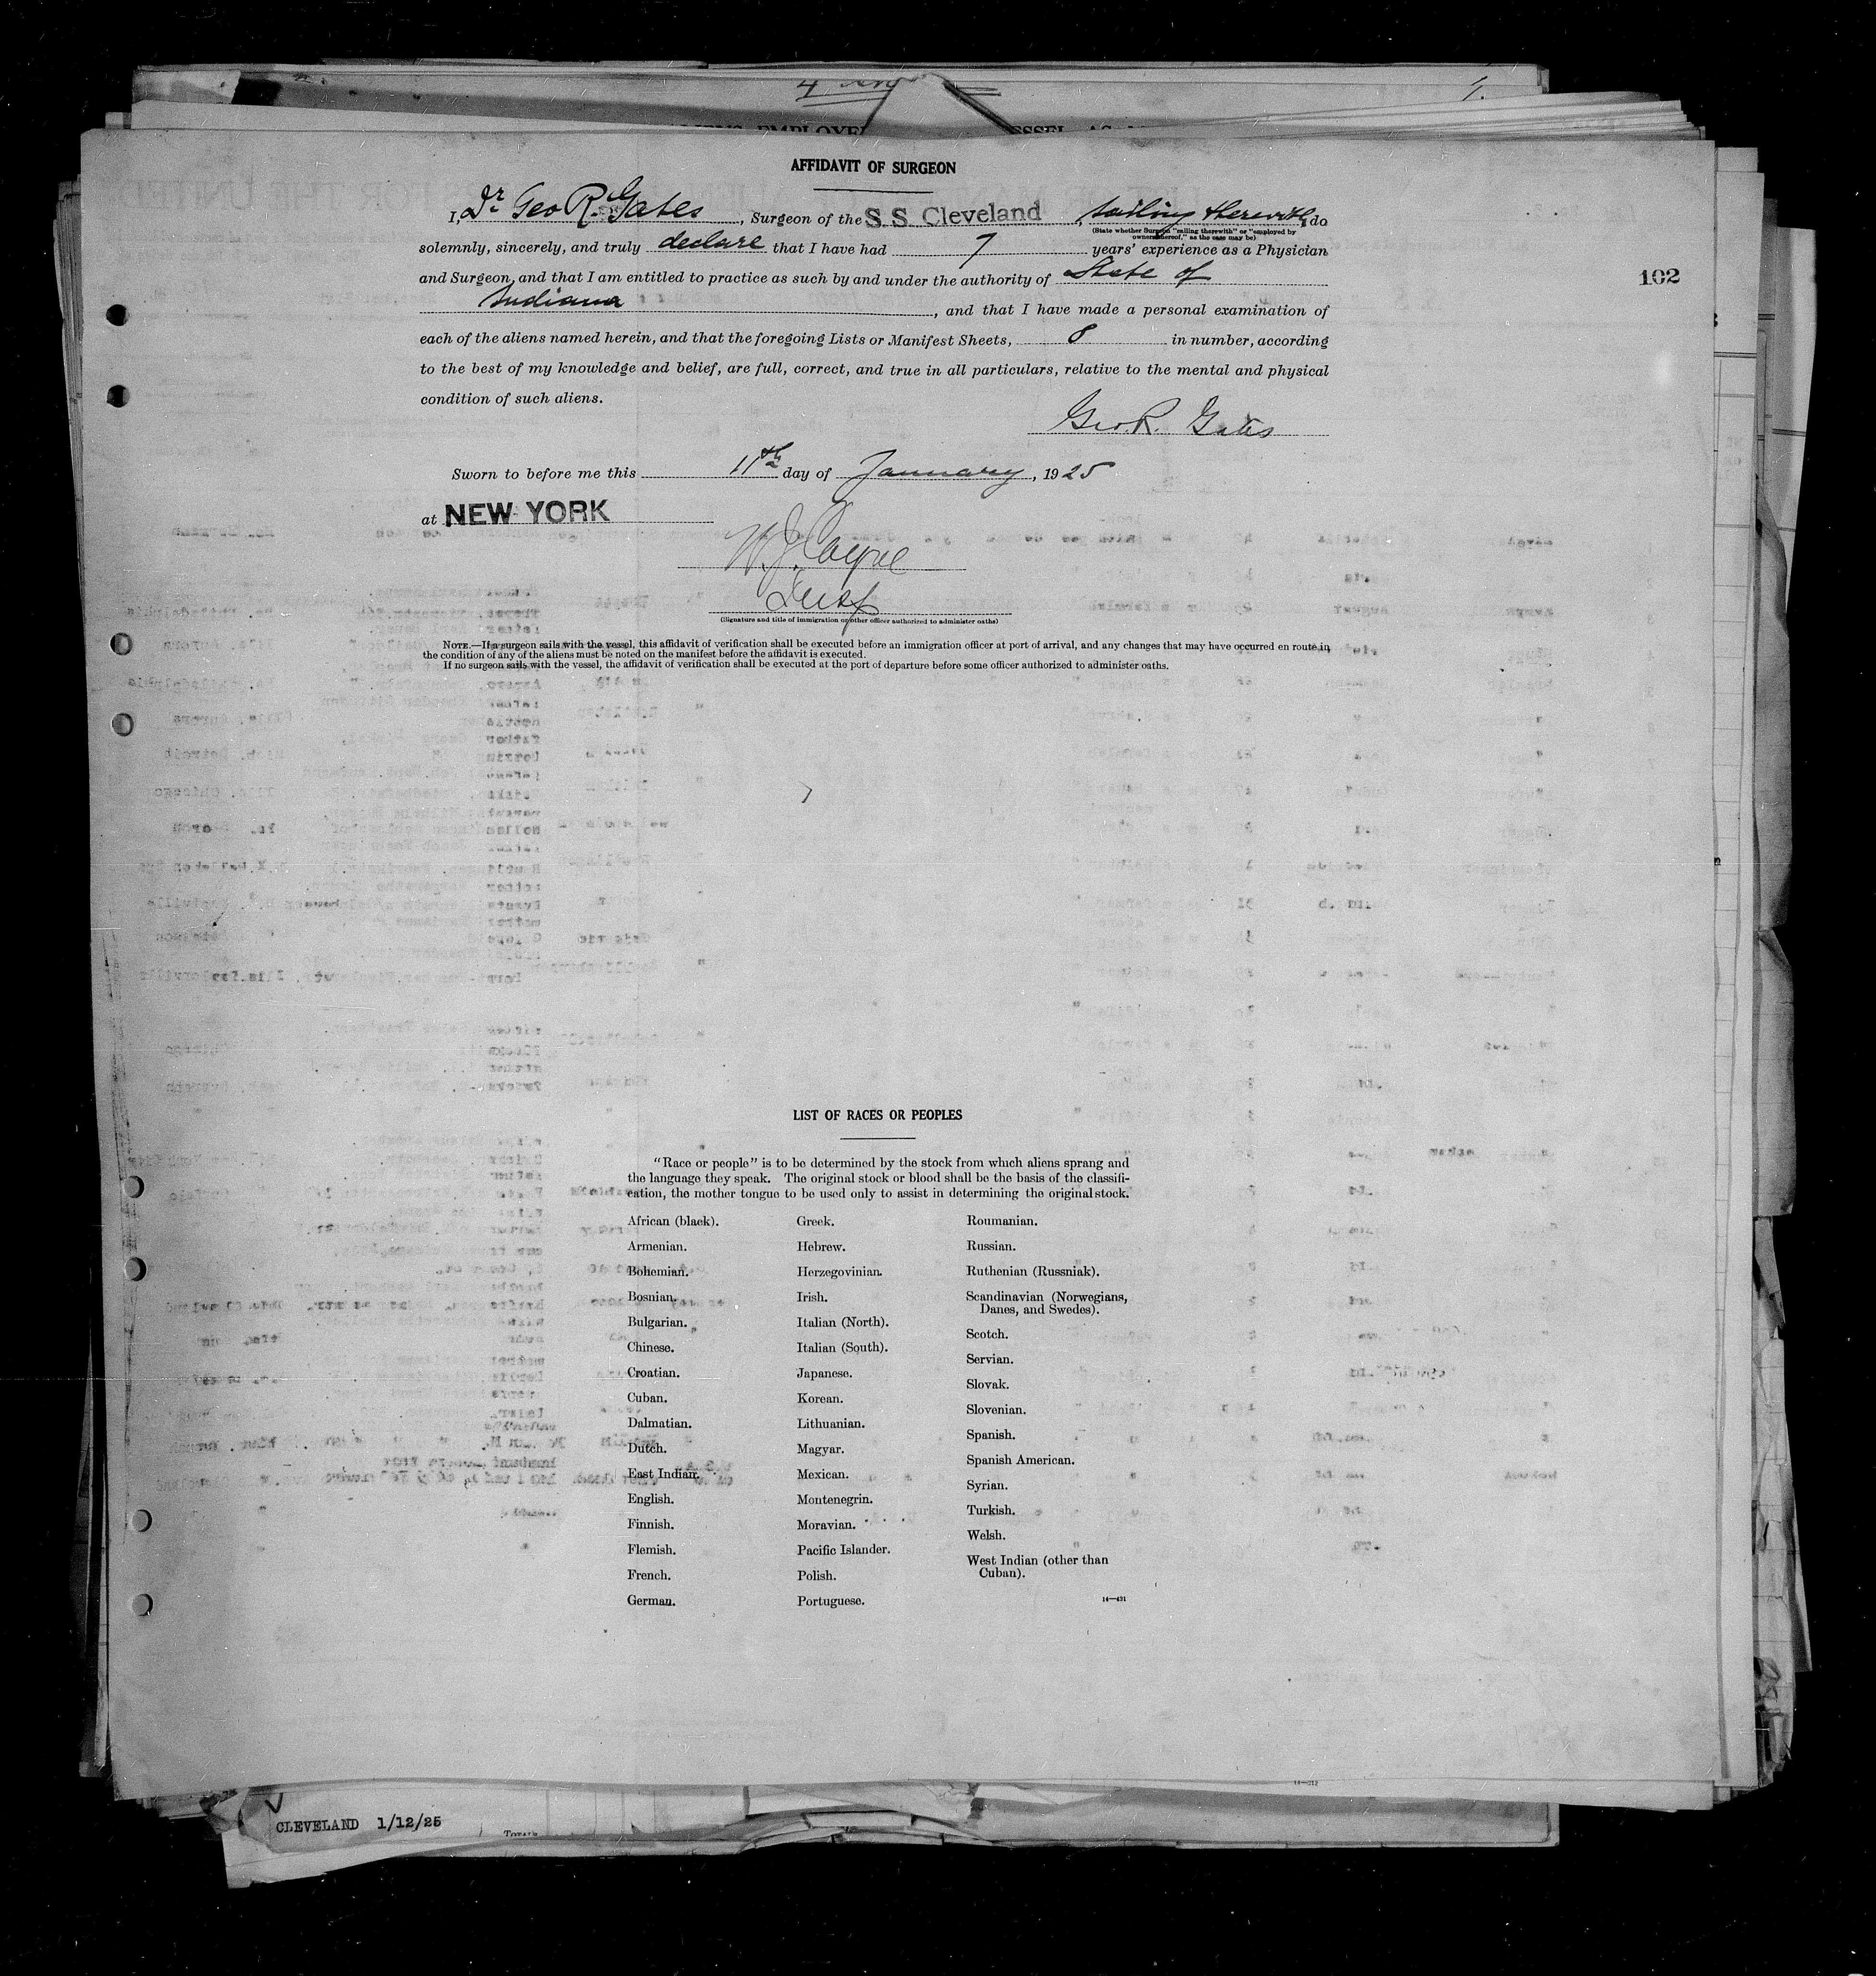 AFFIDAVIT OF SURGEON
I, Dr Geo R. Gates, Surgeon of the S. S. Cleveland, sailing therewith, do
(State whether Surgeon "sailing therewith" or "employed by
owners thereof," as the case may be)
solemnly, sincerely, and truly declare that I have had 7 years' experience as a Physician
and Surgeon, and that I am entitled to practice as such by and under the authority of State of
Indiana, and that I have made a personal examination of
each of the aliens named herein, and that the foregoing Lists or Manifest Sheets, 8 in number, according
to the best of my knowledge and belief, are full, correct, and true in all particulars, relative to the mental and physical
condition of such aliens.
Geo. R. Gates
Sworn to before me this 11th day of January, 1925
at NEW YORK
(Signature and title of immigration or other officer authorized to administer oaths)
NOTE.—If a surgeon sails with the vessel, this affidavit of verification shall be executed before an immigration officer at port of arrival, and any changes that may have occurred en route in
the condition of any of the aliens must be noted on the manifest before the affidavit is executed.
If no surgeon sails with the vessel, the affidavit of verification shall be executed at the port of departure before some officer authorized to administer oaths.
102
LIST OF RACES OR PEOPLES
"Race or people" is to be determined by the stock from which aliens sprang and
the language they speak. The original stock or blood shall be the basis of the classifi-
cation, the mother tongue to be used only to assist in determining the original stock.
African (black).
Armenian.
Bohemian.
Bosnian.
Bulgarian.
Chinese.
Croatian.
Cuban.
Dalmatian.
Dutch.
East Indian.
English.
Finnish.
Flemish.
French.
German.
Greek.
Hebrew.
Herzegovinian.
Irish.
Italian (North).
Italian (South).
Japanese.
Korean.
Lithuanian.
Magyar.
Mexican.
Montenegrin.
Moravian.
Pacific Islander.
Polish.
Portuguese.
Roumanian.
Russian.
Ruthenian (Russniak).
Scandinavian (Norwegians,
Danes, and Swedes).
Scotch.
Servian.
Slovak.
Slovenian.
Spanish.
Spanish American.
Syrian.
Turkish.
Welsh.
West Indian (other than
Cuban).
14—431
CLEVELAND 1/12/25